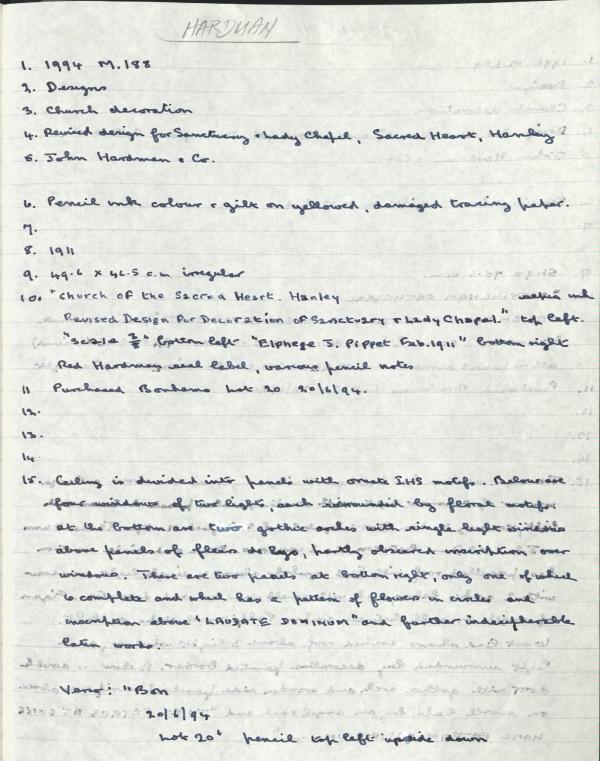 HARDMAN
1. 1994 M.188
2. Designs
3. Church decoration
4. Revised design for Sanctuary & Lady Chapel, Sacred Heart, Hanley
5. John Hardman & Co.
6. Pencil ink colour & gilt on yellowed, damaged tracing paper.
7.
8. 1911
9. 49.6 x 46.5 c.m. irregular
10. "Church of the Sacred Heart. Hanley
Revised Design for Decoration of Sanctuary & Lady Chapel." top left.
"Scale" bottom left "Elphege J. Pippet Feb. 1911" bottom right
Red Hardman seal label, various pencil notes
11 Purchased Bonhams Lot 20 20/6/94.
12.
13.
14
15. Ceiling is divided into panels with ornate IHS motifs. Below are
four windows of two lights, each surrounded by floral motifs
at the bottom are two gothic arches with single light windows
above panels of fleurs de lys, partly obscured inscription over
windows. There are two panels at bottom right, only one of which
is complete and which has a pattern of flowers in circles and
inscription above "LAUDATE DOMINUM" and further indecipherable
latin words.
Verso: "Bon
20/6/94
Lot 20" pencil top left upside down